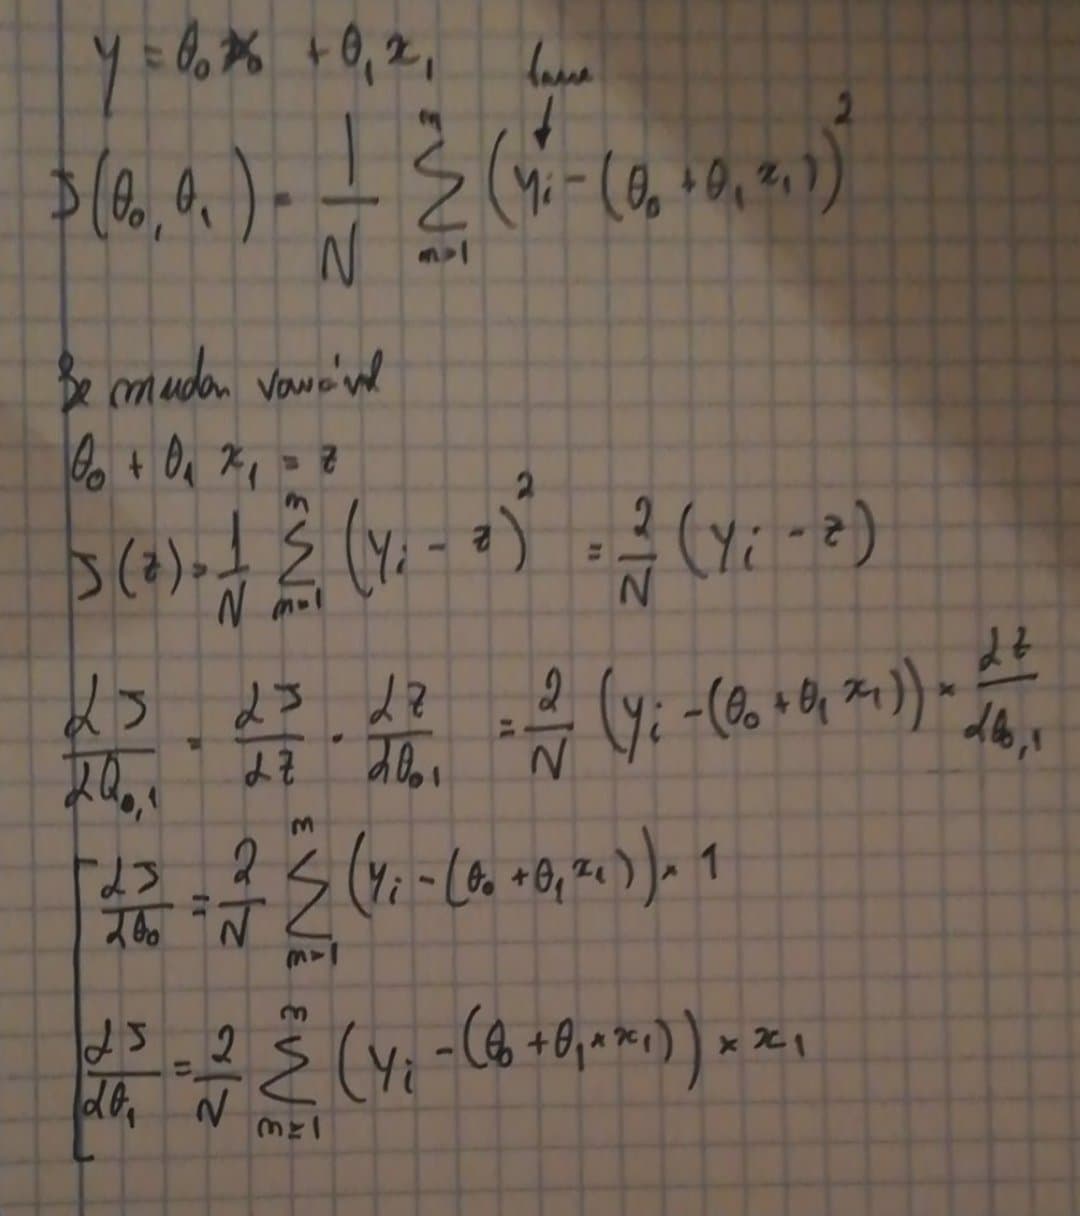 y = θ₀ x₀ + θ₁ x₁
J(θ₀, θ₁) = 1/N ∑_{m=1}^{m} (yᵢ - (θ₀ + θ₁ x₁))²
Se mudar variável
θ₀ + θ₁ x₁ = z
J(z) = 1/N ∑_{m=1}^{m} (yᵢ - z)² = 2/N (yᵢ - z)
dJ/dθ₀,₁ = dJ/dz · dz/dθ₀,₁ = 2/N (yᵢ - (θ₀ + θ₁ x₁)) × dz/dθ₀,₁
dJ/dθ₀ = 2/N ∑_{m=1}^{m} (yᵢ - (θ₀ + θ₁ x₁)) × 1
dJ/dθ₁ = 2/N ∑_{m=1}^{m} (yᵢ - (θ₀ + θ₁ × x₁)) × x₁